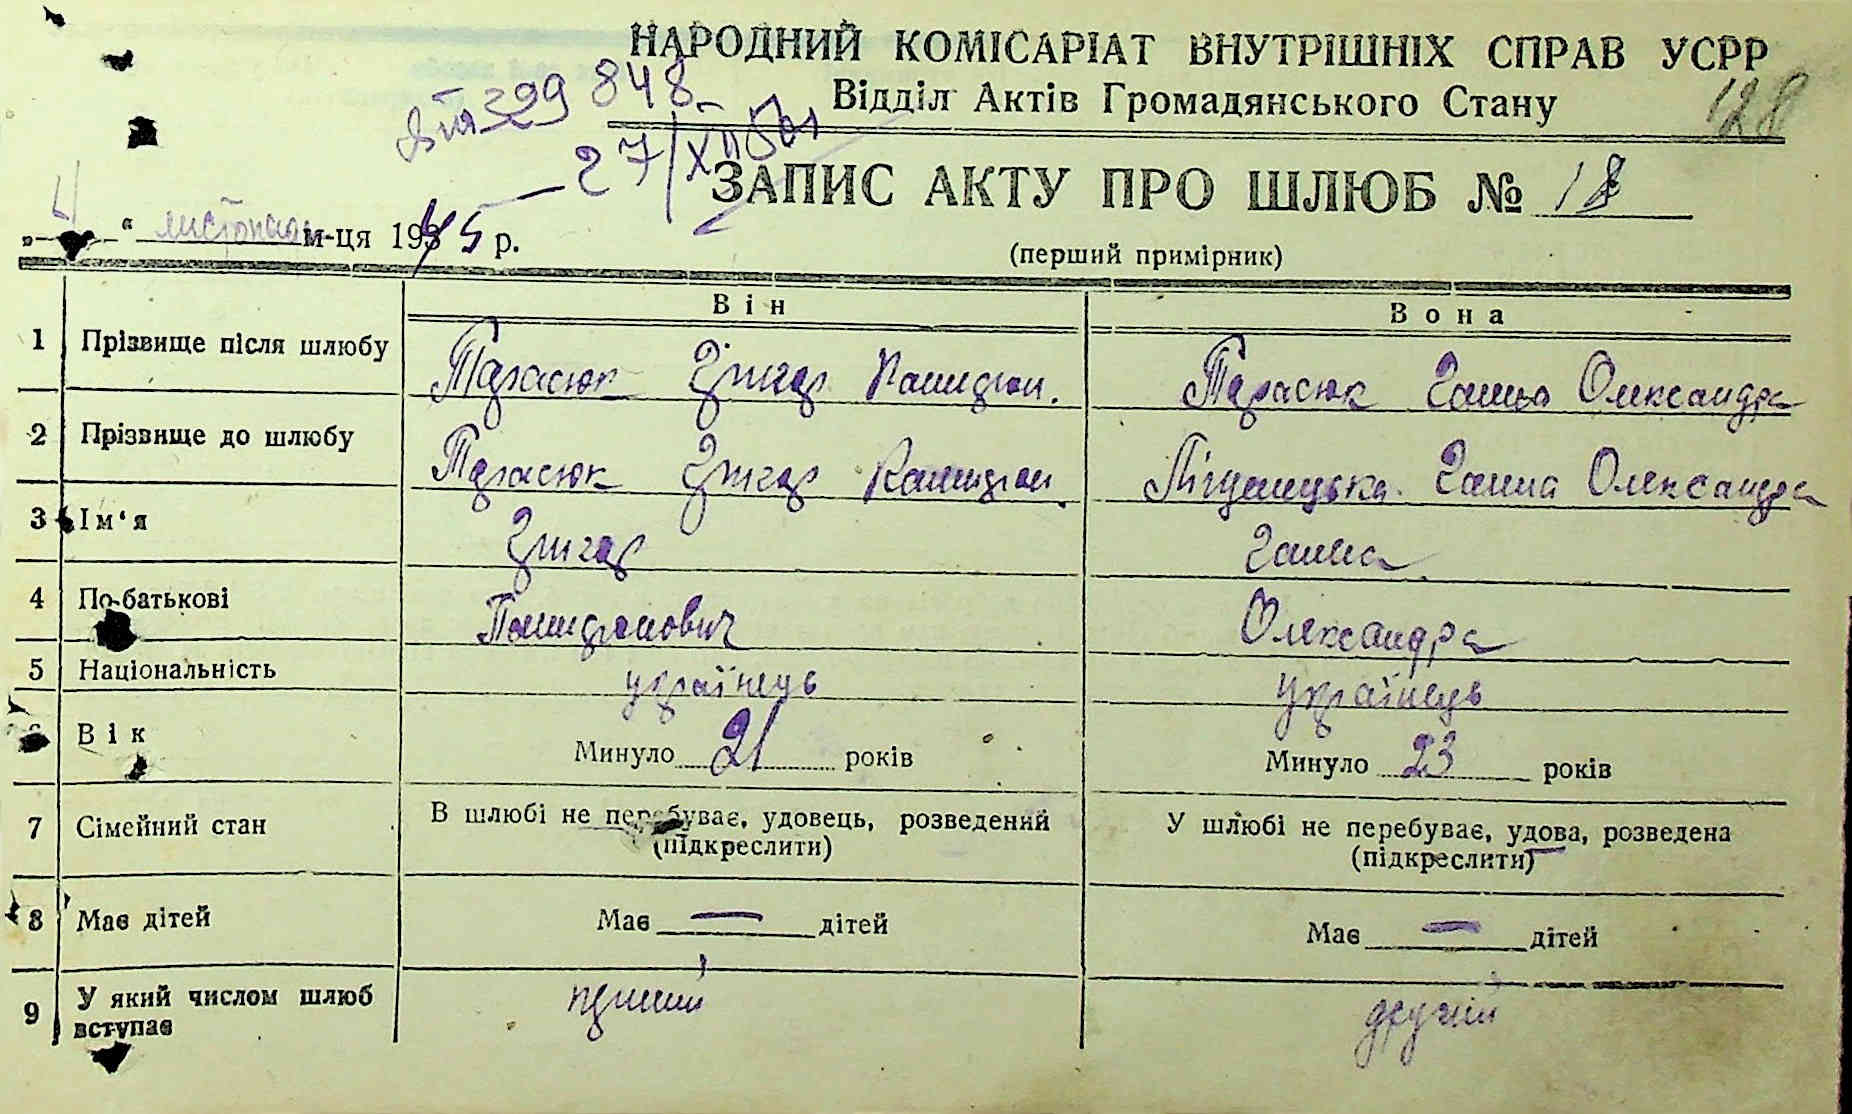 НАРОДНИЙ КОМІСАРІАТ ВНУТРІШНІХ СПРАВ УСРР
Відділ Актів Громадянського Стану
128
299 848
27/XII
ЗАПИС АКТУ ПРО ШЛЮБ № 18
4 " листопада м-ця 1945 р.
(перший примірник)
Він Вона
1 Прізвище після шлюбу Тарасюк Григор Тарасюк Ганна Олександра
2 Прізвище до шлюбу Тарасюк Григор Ганна Олександра
3 Ім'я Григор Ганна
4 По-батькові Олександра
5 Національність українець українець
6 Вік Минуло 21 років Минуло 23 років
7 Сімейний стан В шлюбі не перебуває, удовець, розведений (підкреслити) У шлюбі не перебуває, удова, розведена (підкреслити)
8 Має дітей Має — дітей Має — дітей
9 У який числом шлюб вступає перший другий